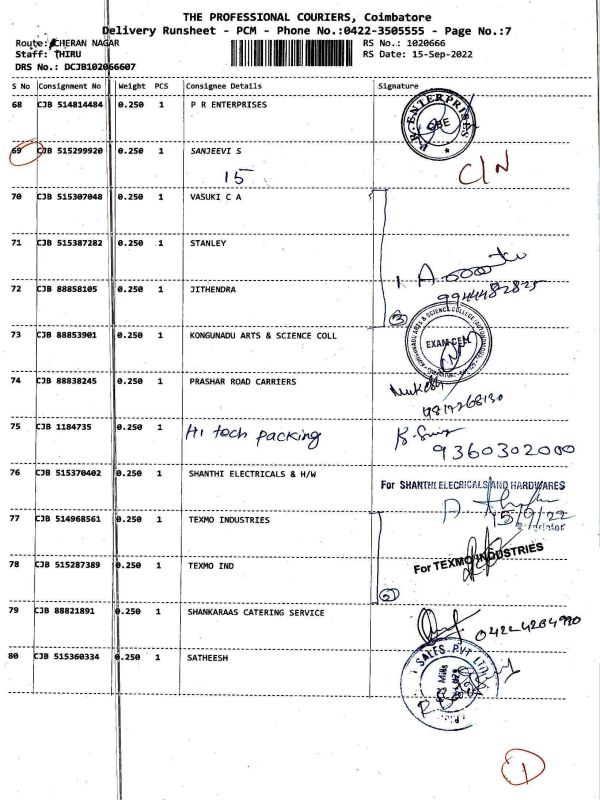 THE PROFESSIONAL COURIERS, Coimbatore
Delivery Runsheet - PCM - Phone No.:0422-3505555 - Page No.:7
Route: CHERAN NAGAR RS No.: 1020666
Staff: THIRU RS Date: 15-Sep-2022
DRS No.: DCJB102066607
S No Consignment No Weight PCS Consignee Details Signature
68 CJB 514814484 0.250 1 P R ENTERPRISES
P.R. ENTERPRISES CBE
69 CJB 515299920 0.250 1 SANJEEVI S C/N
15
70 CJB 515307048 0.250 1 VASUKI C A
71 CJB 515387282 0.250 1 STANLEY
72 CJB 88858105 0.250 1 JITHENDRA
9944482825
3
73 CJB 88853901 0.250 1 KONGUNADU ARTS & SCIENCE COLL
EXAM CELL
74 CJB 88838245 0.250 1 PRASHAR ROAD CARRIERS
Mukesh
75 CJB 1184735 0.250 1 Hi tech packing
9360302000
76 CJB 515370402 0.250 1 SHANTHI ELECTRICALS & H/W
For SHANTHI ELECRICALS AND HARDWARES
15/9/22
77 CJB 514968561 0.250 1 TEXMO INDUSTRIES
78 CJB 515287389 0.250 1 TEXMO IND
For TEXMO INDUSTRIES
79 CJB 88821891 0.250 1 SHANKARAAS CATERING SERVICE
80 CJB 515360334 0.250 1 SATHEESH
SALES PVT LTD
1